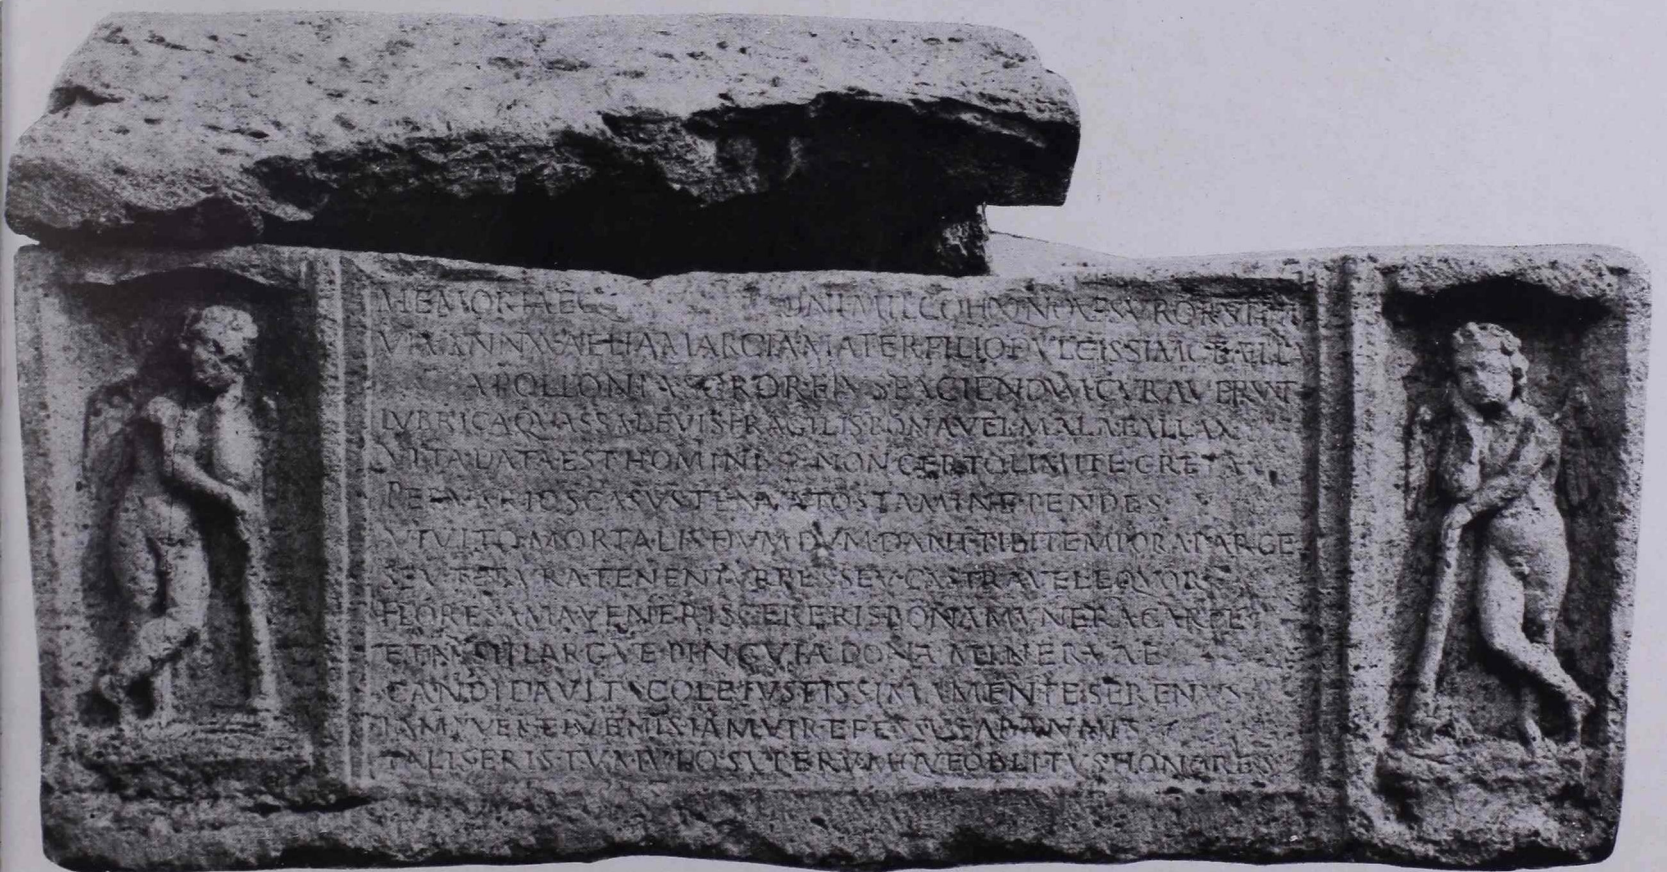 MEMORIAE MIL COH NOV SVROR
AELIA MARCIA MATER FILIO DVLCISSIMO
APOLLONIA SOROR EIVS FACIENDVM CVRAVERVNT
LVBRICA QVASSA LEVIS FRAGILIS BONA VEL MALA FALLAX
VITA DATA EST HOMINI NON CERTO LIMITE CRETA
PER VARIOS CASVS TENVATO STAMINE PENDES
VIVITO MORTALIS DVM DVM DANT TIBI TEMPORA PARCE
SEV TE RVRA TENENT VRBES SEV CASTRA VEL EQVOR
FLORES AMA VENERIS CERERIS BONA MVNERA CARPE
ET NYSII LARGA E PINGVIA DONA MINERVAE
CANDIDA VITA COLE IVSTISSIMA MENTE SERENVS
IAM PVER ET IVENIS IAM VIR E FESSVS AB ANNIS
TALIS ERIS TVMVLO SVPERVMQVE OBLITVS HONORES